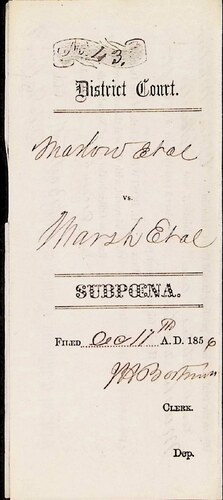 No. 43.
District Court.
Marlow Etal
vs.
Marsh Etal
SUBPŒNA.
FILED Oct 17th A. D. 1856
CLERK.
Dep.